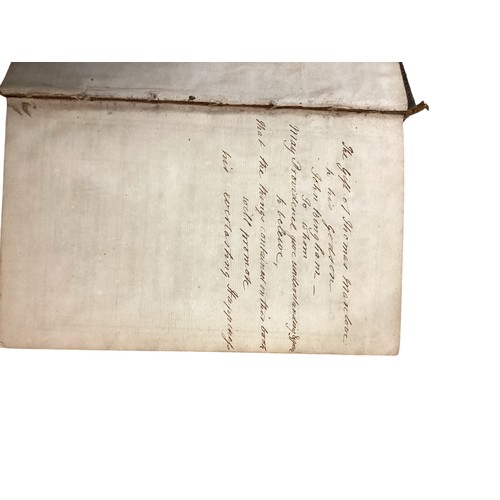 The Gift of Thomas
to his Godson
John Kingham —
To whom
May Providence give understanding &
to beleive,
that the things contained in this book
will promote
his everlasting Happiness